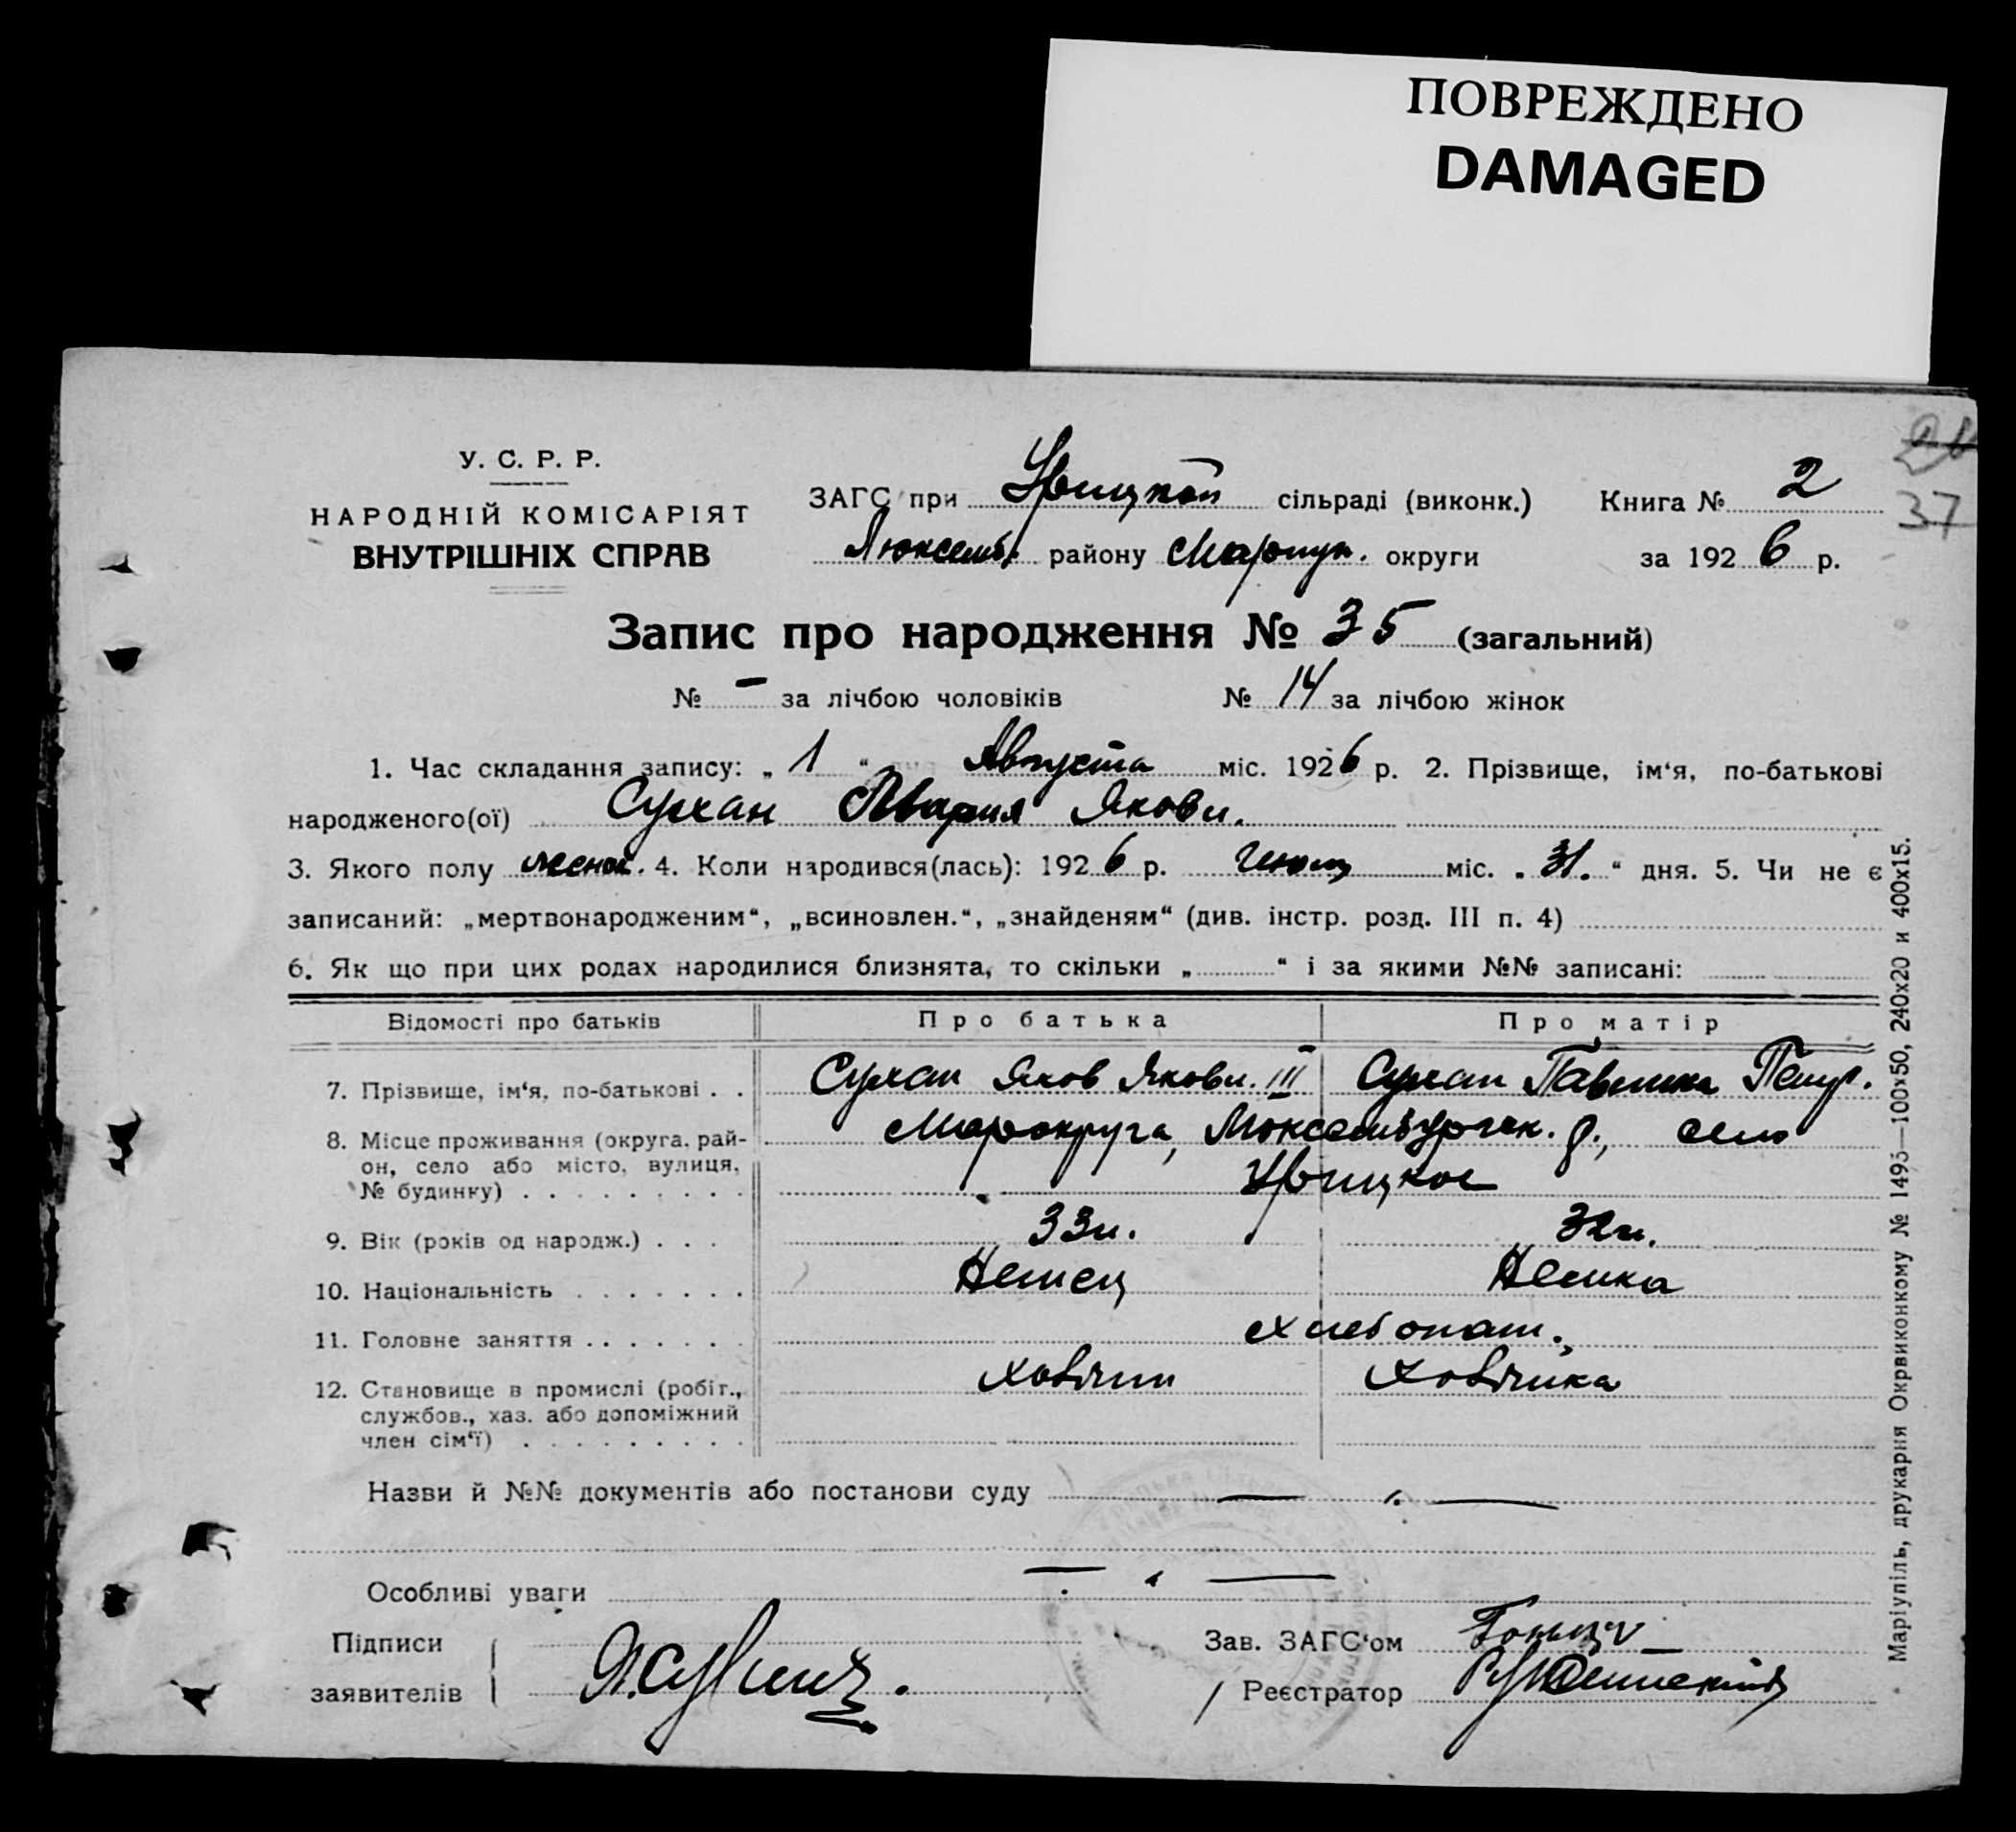 ПОВРЕЖДЕНО
DAMAGED
28
37
У. С. Р. Р.
НАРОДНІЙ КОМІСАРІЯТ
ВНУТРІШНІХ СПРАВ
ЗАГС при Урицкой сільраді (виконк.) Книга № 2
Люксемб. району Мариуп. округи за 1926 р.
Запис про народження № 35 (загальний)
№ – за лічбою чоловіків № 14 за лічбою жінок
1. Час складання запису: „ 1 “ Августа міс. 1926 р. 2. Прізвище, ім‘я, по-батькові
народженого(ої) Мария Якови.
3. Якого полу женск. 4. Коли народився(лась): 1926 р. міс. „ 31. “ дня. 5. Чи не є
записаний: „мертвонародженим“, „всиновлен.“, „знайденям“ (див. інстр. розд. III п. 4)
6. Як що при цих родах народилися близнята, то скільки „ “ і за якими №№ записані:
Відомості про батьків Про батька Про матір
7. Прізвище, ім‘я, по-батькові . . Яков Якови. III
8. Місце проживання (округа, рай-
он, село або місто, вулиця,
№ будинку) . . . . . . . . . Мариокруга, Люксембургск. р., село
Урицкое
9. Вік (років од народж.) . . . 33 л. 32 л.
10. Національність . . . . . . . Немец Немка
11. Головне заняття . . . . . . . хлебопаш.
12. Становище в промислі (робіт.,
службов., хаз. або допоміжний
член сім‘ї) . . . . . . . . .
Назви й №№ документів або постанови суду
Особливі уваги
Підписи
заявителів
Зав. ЗАГС‘ом
Реєстратор
Маріупіль, друкарня Окрвиконкому № 1495—100х50, 240х20 и 400х15.